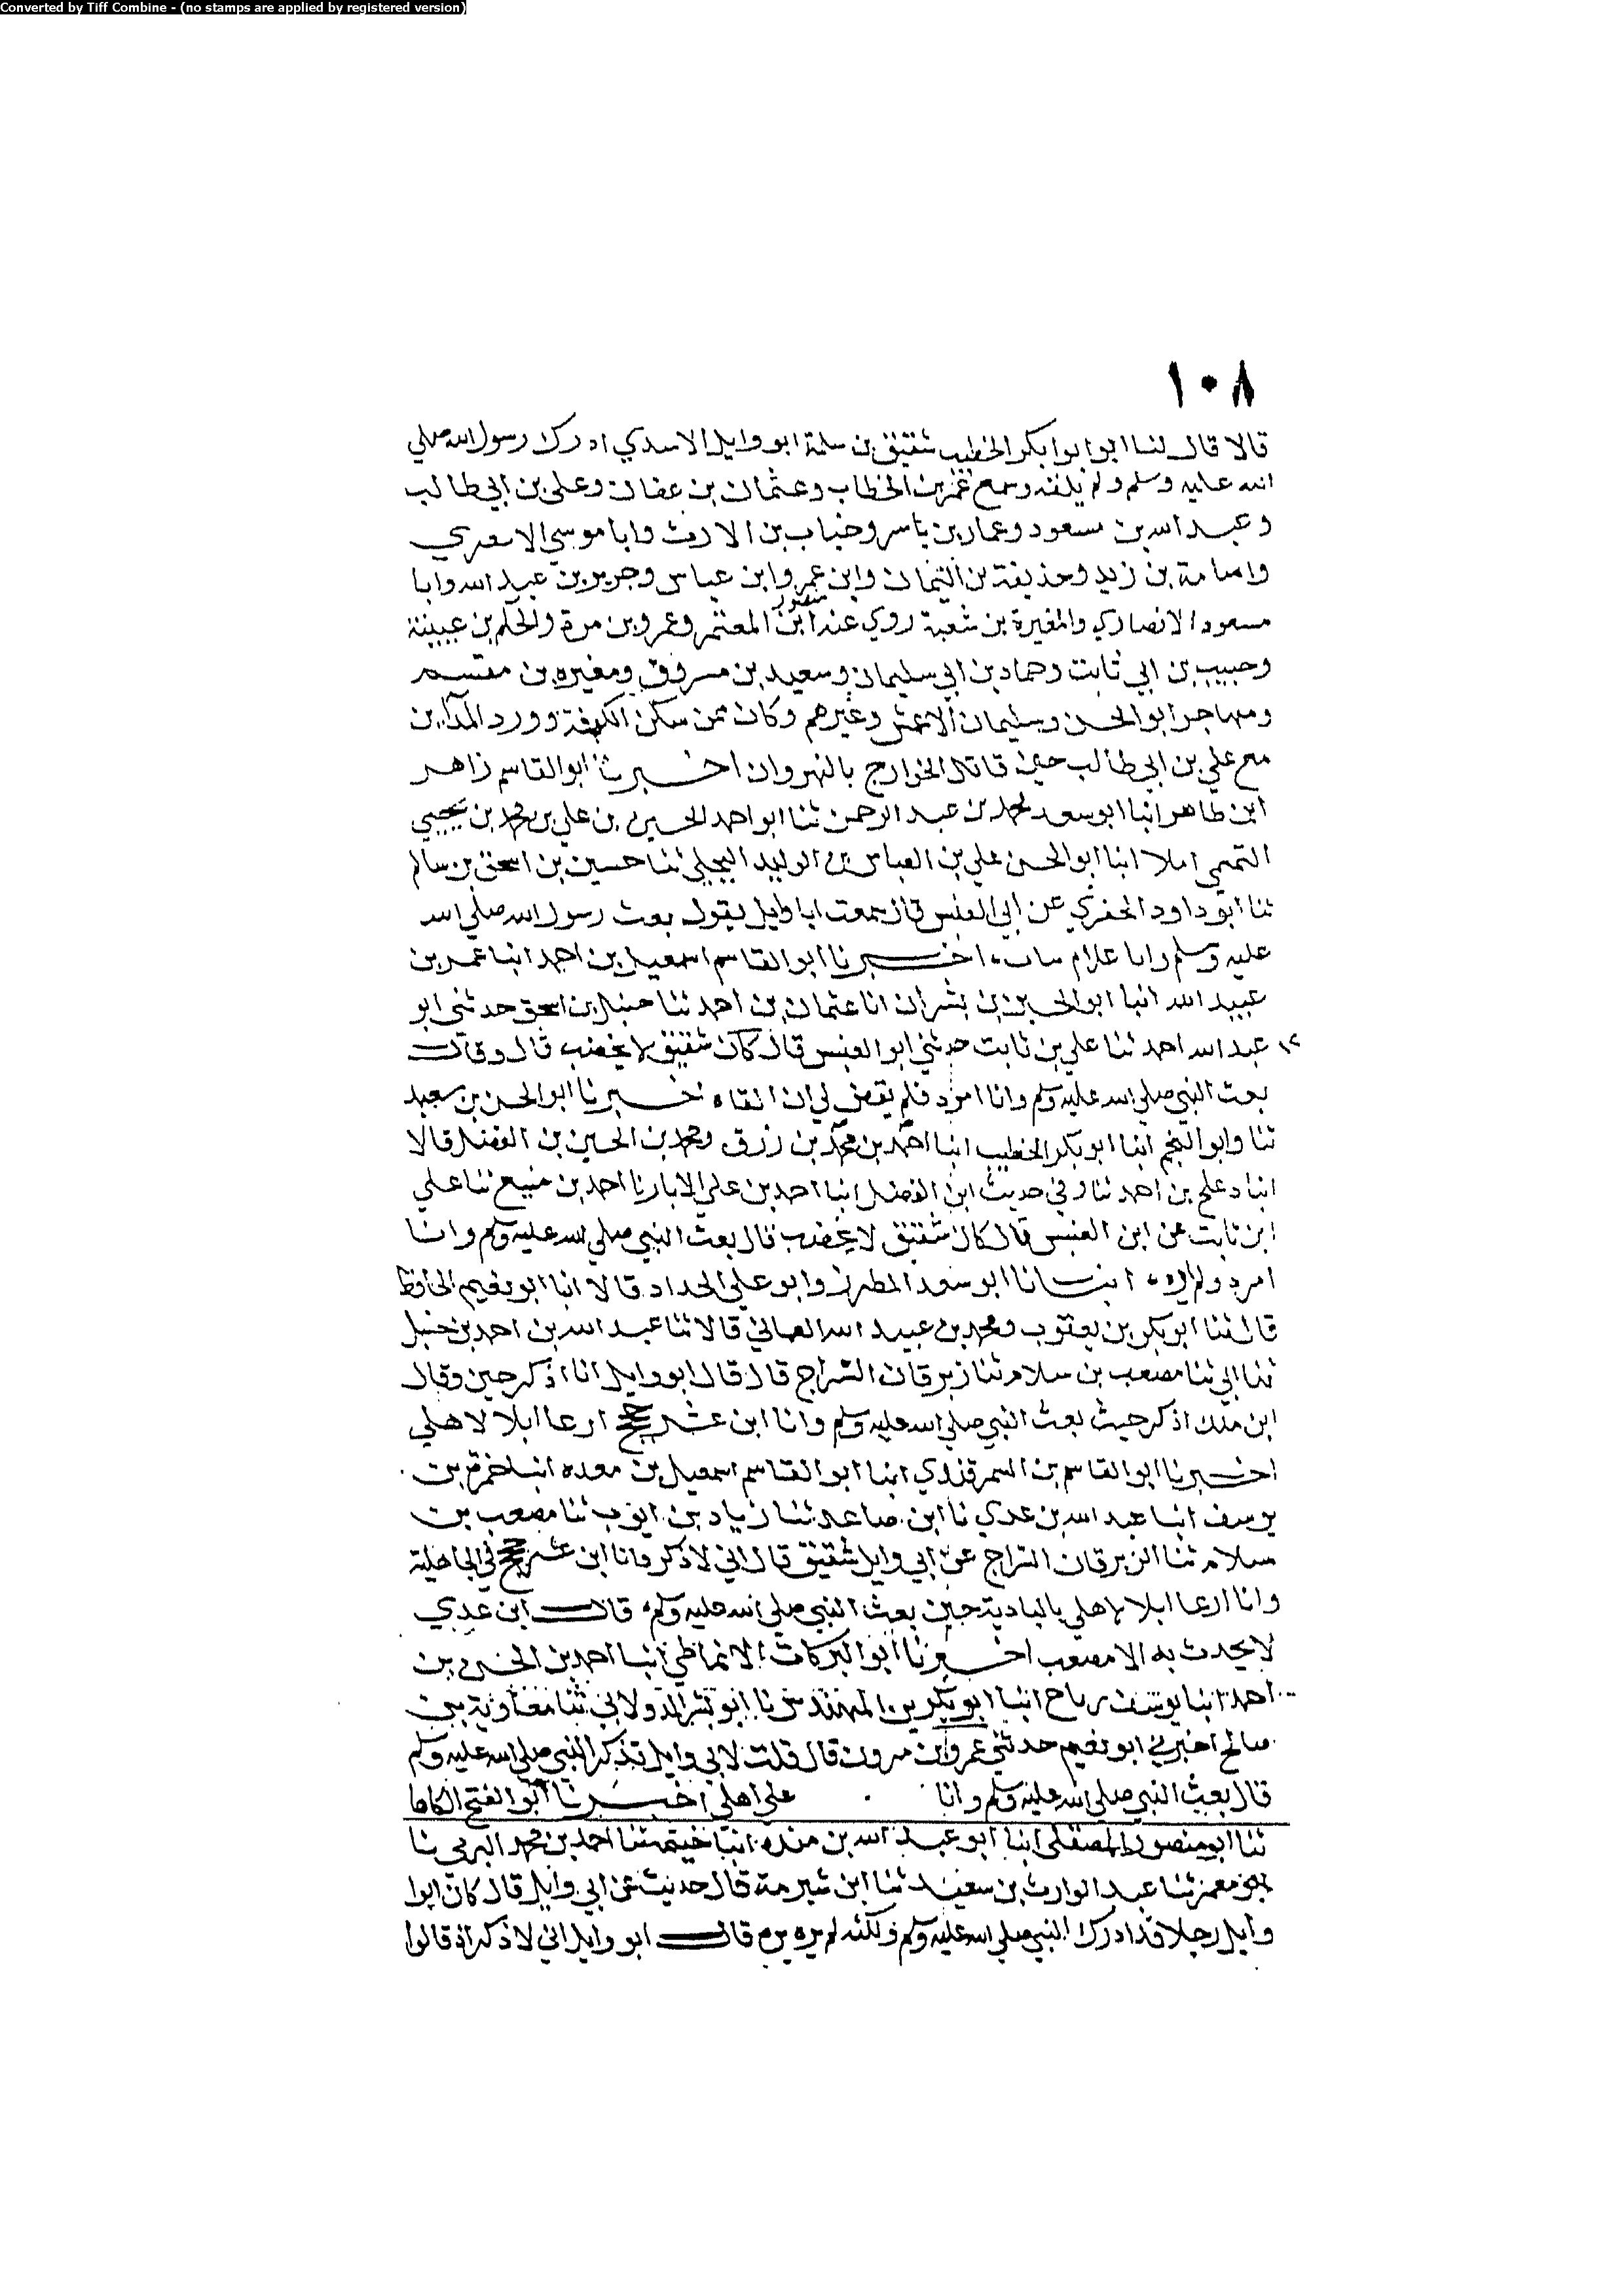 Converted by Tiff Combine - (no stamps are applied by registered version)
١٠٨
قالا قال لنا ابو ابوا بكر الخطيب شقيق بن سلمة ابو وايل الاسدي ادرك رسول الله صلي
الله عليه وسلم ولم يلقه وسمع عمر بن الخطاب وعثمان بن عفان وعلي بن ابي طالب
وعبد الله بن مسعود وعمار بن ياسر وخباب بن الارت وابا موسي الاشعري
واسامة بن زيد وحذيفة بن اليمان وابن عمر وابن عباس وجرير بن عبد الله وابا
مسعود الانصاري والمغيرة بن شعبة روي عنه منصور ابن المعتمر وعمرو بن مرة والحكم بن عيينة
وحبيب بن ابي ثابت وحماد بن ابي سليمان وسعيد بن مسروق ومغيره بن مقسم
ومهاجر ابو الحسن وسليمان الاعمش وغيرهم وكان ممن سكن الكوفة وورد المداين
مع علي بن ابي طالب حين قاتل الخوارج بالنهروان اخبرنا ابو القاسم زاهر
ابن طاهر انبا ابو سعد محمد بن عبد الرحمن ثنا ابو احمد الحسين بن علي بن محمد بن يحيي
التميمي املا انبا ابو الحسن علي بن العباس بن الوليد البجلي ثنا حسين بن اسحق بن سالم
ثنا ابو داود الحفري عن ابي العنبس قال سمعت ابا وايل يقول بعث رسول الله صلي الله
عليه وسلم وانا غلام شاب اخبرنا ابو القاسم اسمعيل بن احمد انبا عمر بن
عبيد الله انبا ابو الحسين بن بشران انا عثمان بن احمد ثنا حنبل بن اسحق حدثني ابو
عبد الله احمد ثنا علي بن ثابت حدثني ابو العنبس قال كان شقيق لا يخضب قال وقال
بعث النبي صلي الله عليه وسلم وانا امرد فلم يقض لي ان القاه اخبرنا ابو الحسن بن سعيد
ثنا وابو النجم انبا ابو بكر الخطيب انبا احمد بن محمد بن رزق ومحمد بن الحسين بن الفضل قالا
انبا دعلج بن احمد ثنا وفي حديث ابن الفضل انبا احمد بن علي الابار نا احمد بن منيع ثنا علي
ابن ثابت عن ابن العنبس قال كان شقيق لا يخضب قال بعث النبي صلي الله عليه وسلم وانا
امرد ولم اره انبانا ابو سعد المطرز وابو علي الحداد قالا انبا ابو نعيم الحافظ
قال ثنا ابو بكر بن يعقوب ومحمد بن عبيد الله قالا ثنا عبد الله بن احمد بن حنبل
ثنا ابي ثنا مصعب بن سلام ثنا زبرقان السراج قال قال ابو وايل انا اذكر حين وقال
ابن ملك اذكر حيث بعث النبي صلي الله عليه وسلم وانا ابن عشر حجج ارعا ابلا لاهلي
اخبرنا ابو القاسم بن السمرقندي انبا ابو القاسم اسمعيل بن معده انبا حمزة بن
يوسف انبا عبد الله بن عدي نا ابن صاعد ثنا زياد بن ايوب ثنا مصعب بن
سلام ثنا الزبرقان السراج عن ابي وايل شقيق قال اني لاذكر وانا ابن عشر حجج في الجاهلية
وانا ارعا ابلا لاهلي بالبادية حين بعث النبي صلي الله عليه وسلم قال ابن عدي
لا يحدث به الا مصعب اخبرنا ابو البركات الانماطي انبا احمد بن الحسن بن
احمد انبا يوسف رباح انبا ابو بكر بن المهندس نا ابو بشر الدولابي ثنا معاوية بن
صالح اخبرني ابو نعيم حدثني عمرو بن مروان قال قلت لابي وايل تذكر النبي صلي الله عليه وسلم
قال بعث النبي صلي الله عليه وسلم وانا علي اهلي اخبرنا ابو الفتح
ثنا ابو منصور المصقلي انبا ابو عبد الله بن منده انبا خيثمة ثنا احمد بن محمد البرتي نا
ابو معمر ثنا عبد الوارث بن سعيد ثنا ابن شبرمة قال حديث عن ابي وايل قال كان ابوا
وايل رجلا قد ادرك النبي صلي الله عليه وسلم ولكنه لم يره قال ابو وايل اني لاذكر اذ قالوا